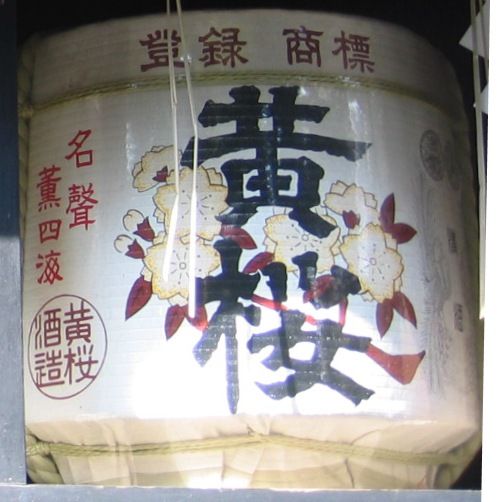 登録 商標
黄桜
名聲
薫四海
黄桜
酒造